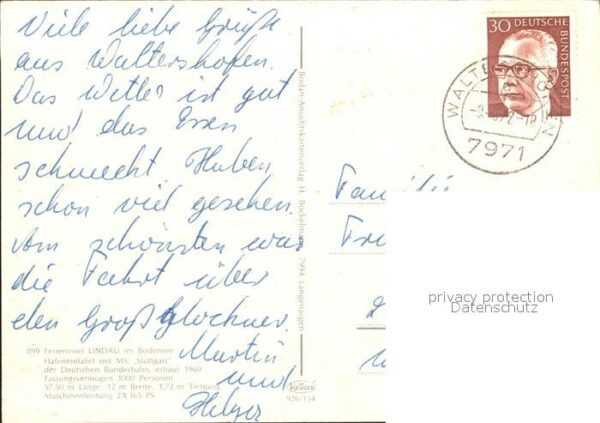 Viele liebe Grüße
aus Waltershofen.
Das Wetter ist gut
und das Essen
schmeckt. Haben
schon viel gesehen.
Am schönsten war
die Fahrt über
den Großglockner.
Martin
und
Helga
899 Ferieninsel LINDAU im Bodensee
Hafeneinfahrt mit MS. „Stuttgart"
der Deutschen Bundesbahn, erbaut 1960
Fassungsvermögen 1000 Personen
57,50 m Länge, 12 m Breite, 1,72 m Tiefgang
Maschinenleistung 2X365 PS
Bodan-Ansichtskartenverlag H. Bockelmann, 7994 Langenargen
Krüger
926/134
30 DEUTSCHE
BUNDESPOST
WALTERSHOFEN
7971
Familie
privacy protection
Datenschutz